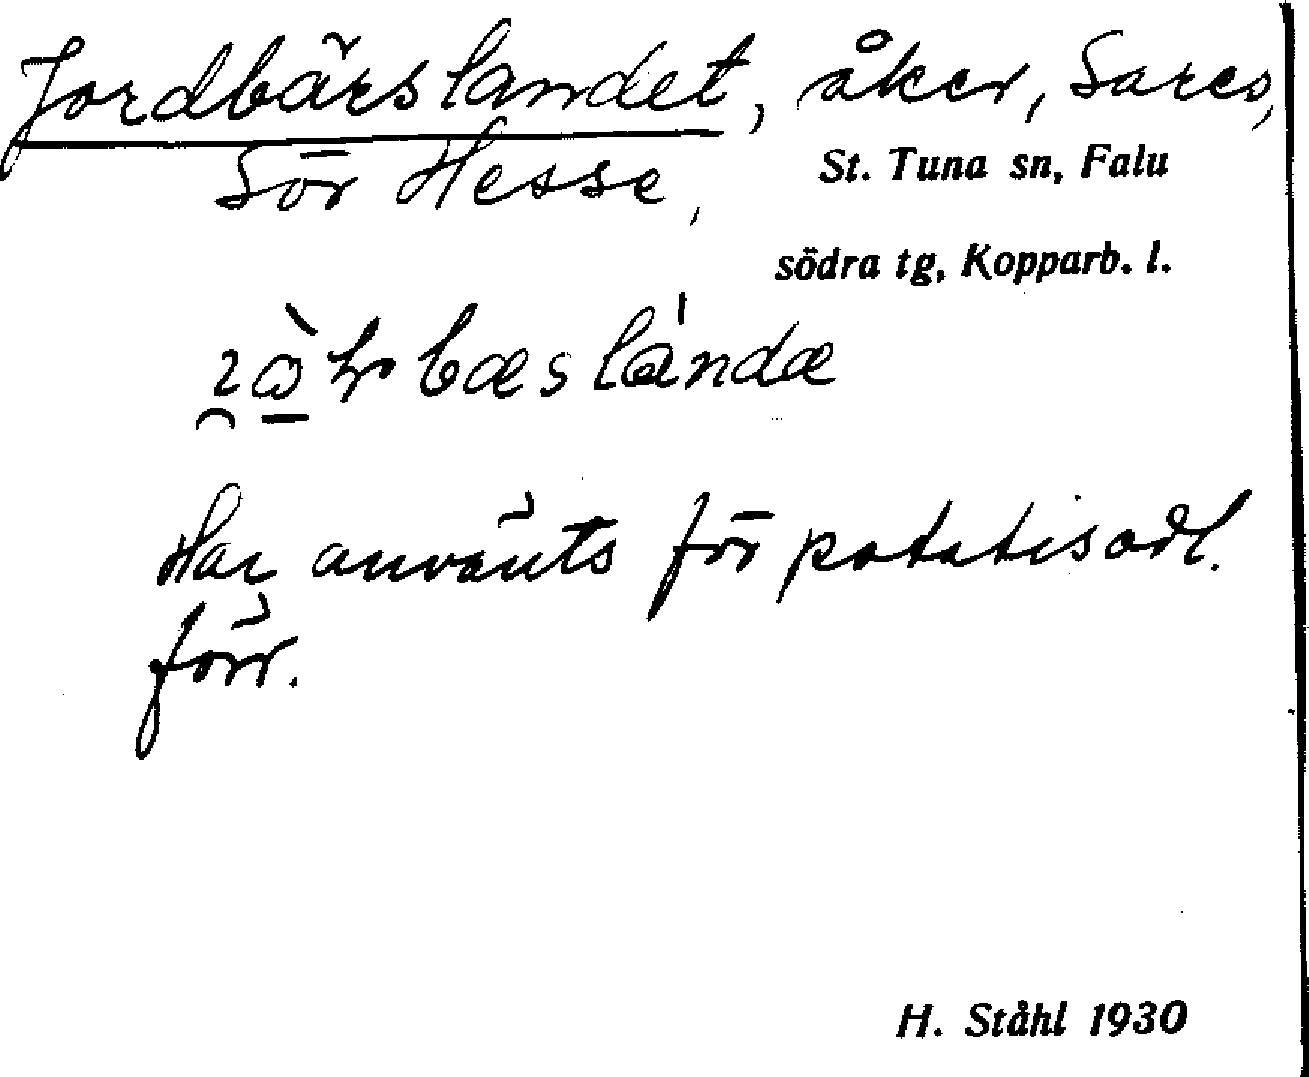 Jordbärslandet, åker, Sares,
Sör Hesse,
St. Tuna sn, Falu
södra tg, Kopparb. l.
Har använts för potatisodl.
förr.
H. Ståhl 1930